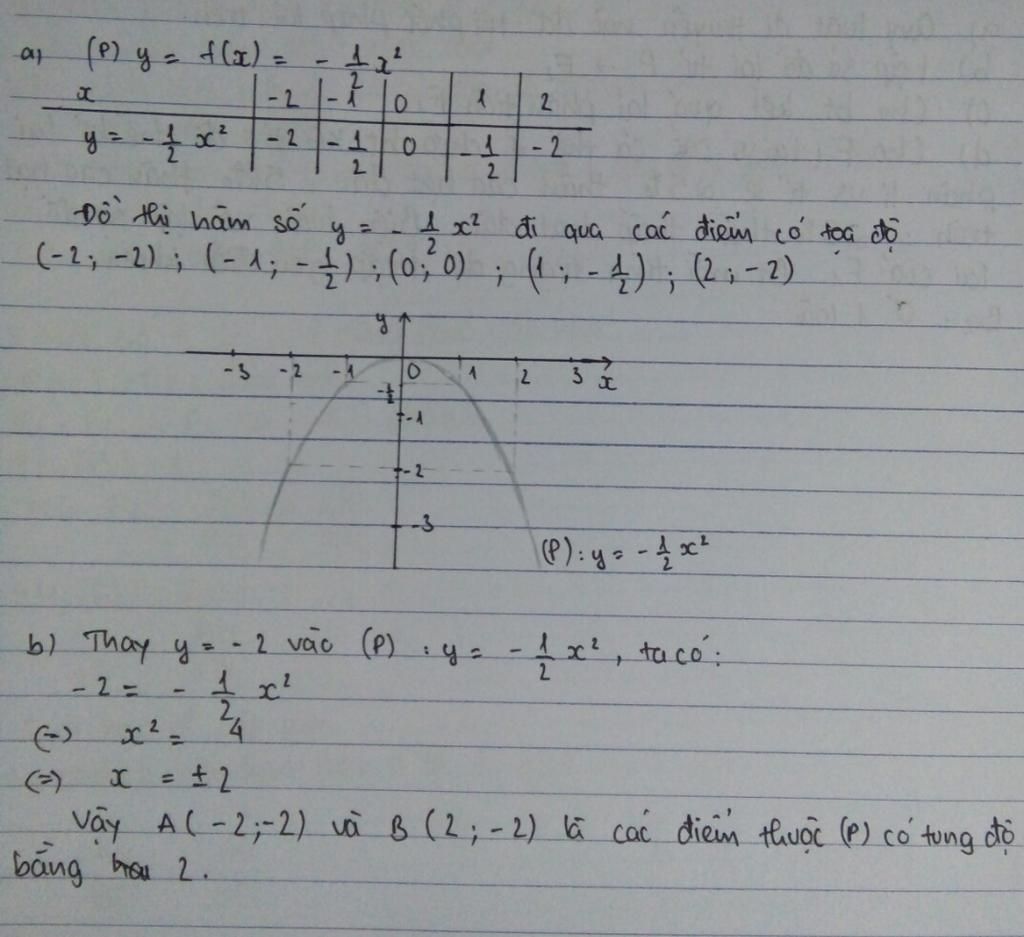 a) (P) y = f(x) = - 1/2 x²
x | -2 | -1 | 0 | 1 | 2
y = - 1/2 x² | -2 | - 1/2 | 0 | - 1/2 | -2
Đồ thị hàm số y = - 1/2 x² đi qua các điểm có toạ độ
(-2; -2) ; (-1; - 1/2) ; (0; 0) ; (1; - 1/2) ; (2; -2)
y
-3 -2 -1 0 1 2 3 x
- 1/2
-1
-2
-3
(P): y = - 1/2 x²
b) Thay y = -2 vào (P) : y = - 1/2 x², ta có:
-2 = - 1/2 x²
(=) x² = 4
(=) x = ± 2
Vậy A(-2;-2) và B (2; -2) là các điểm thuộc (P) có tung độ
bằng 2.